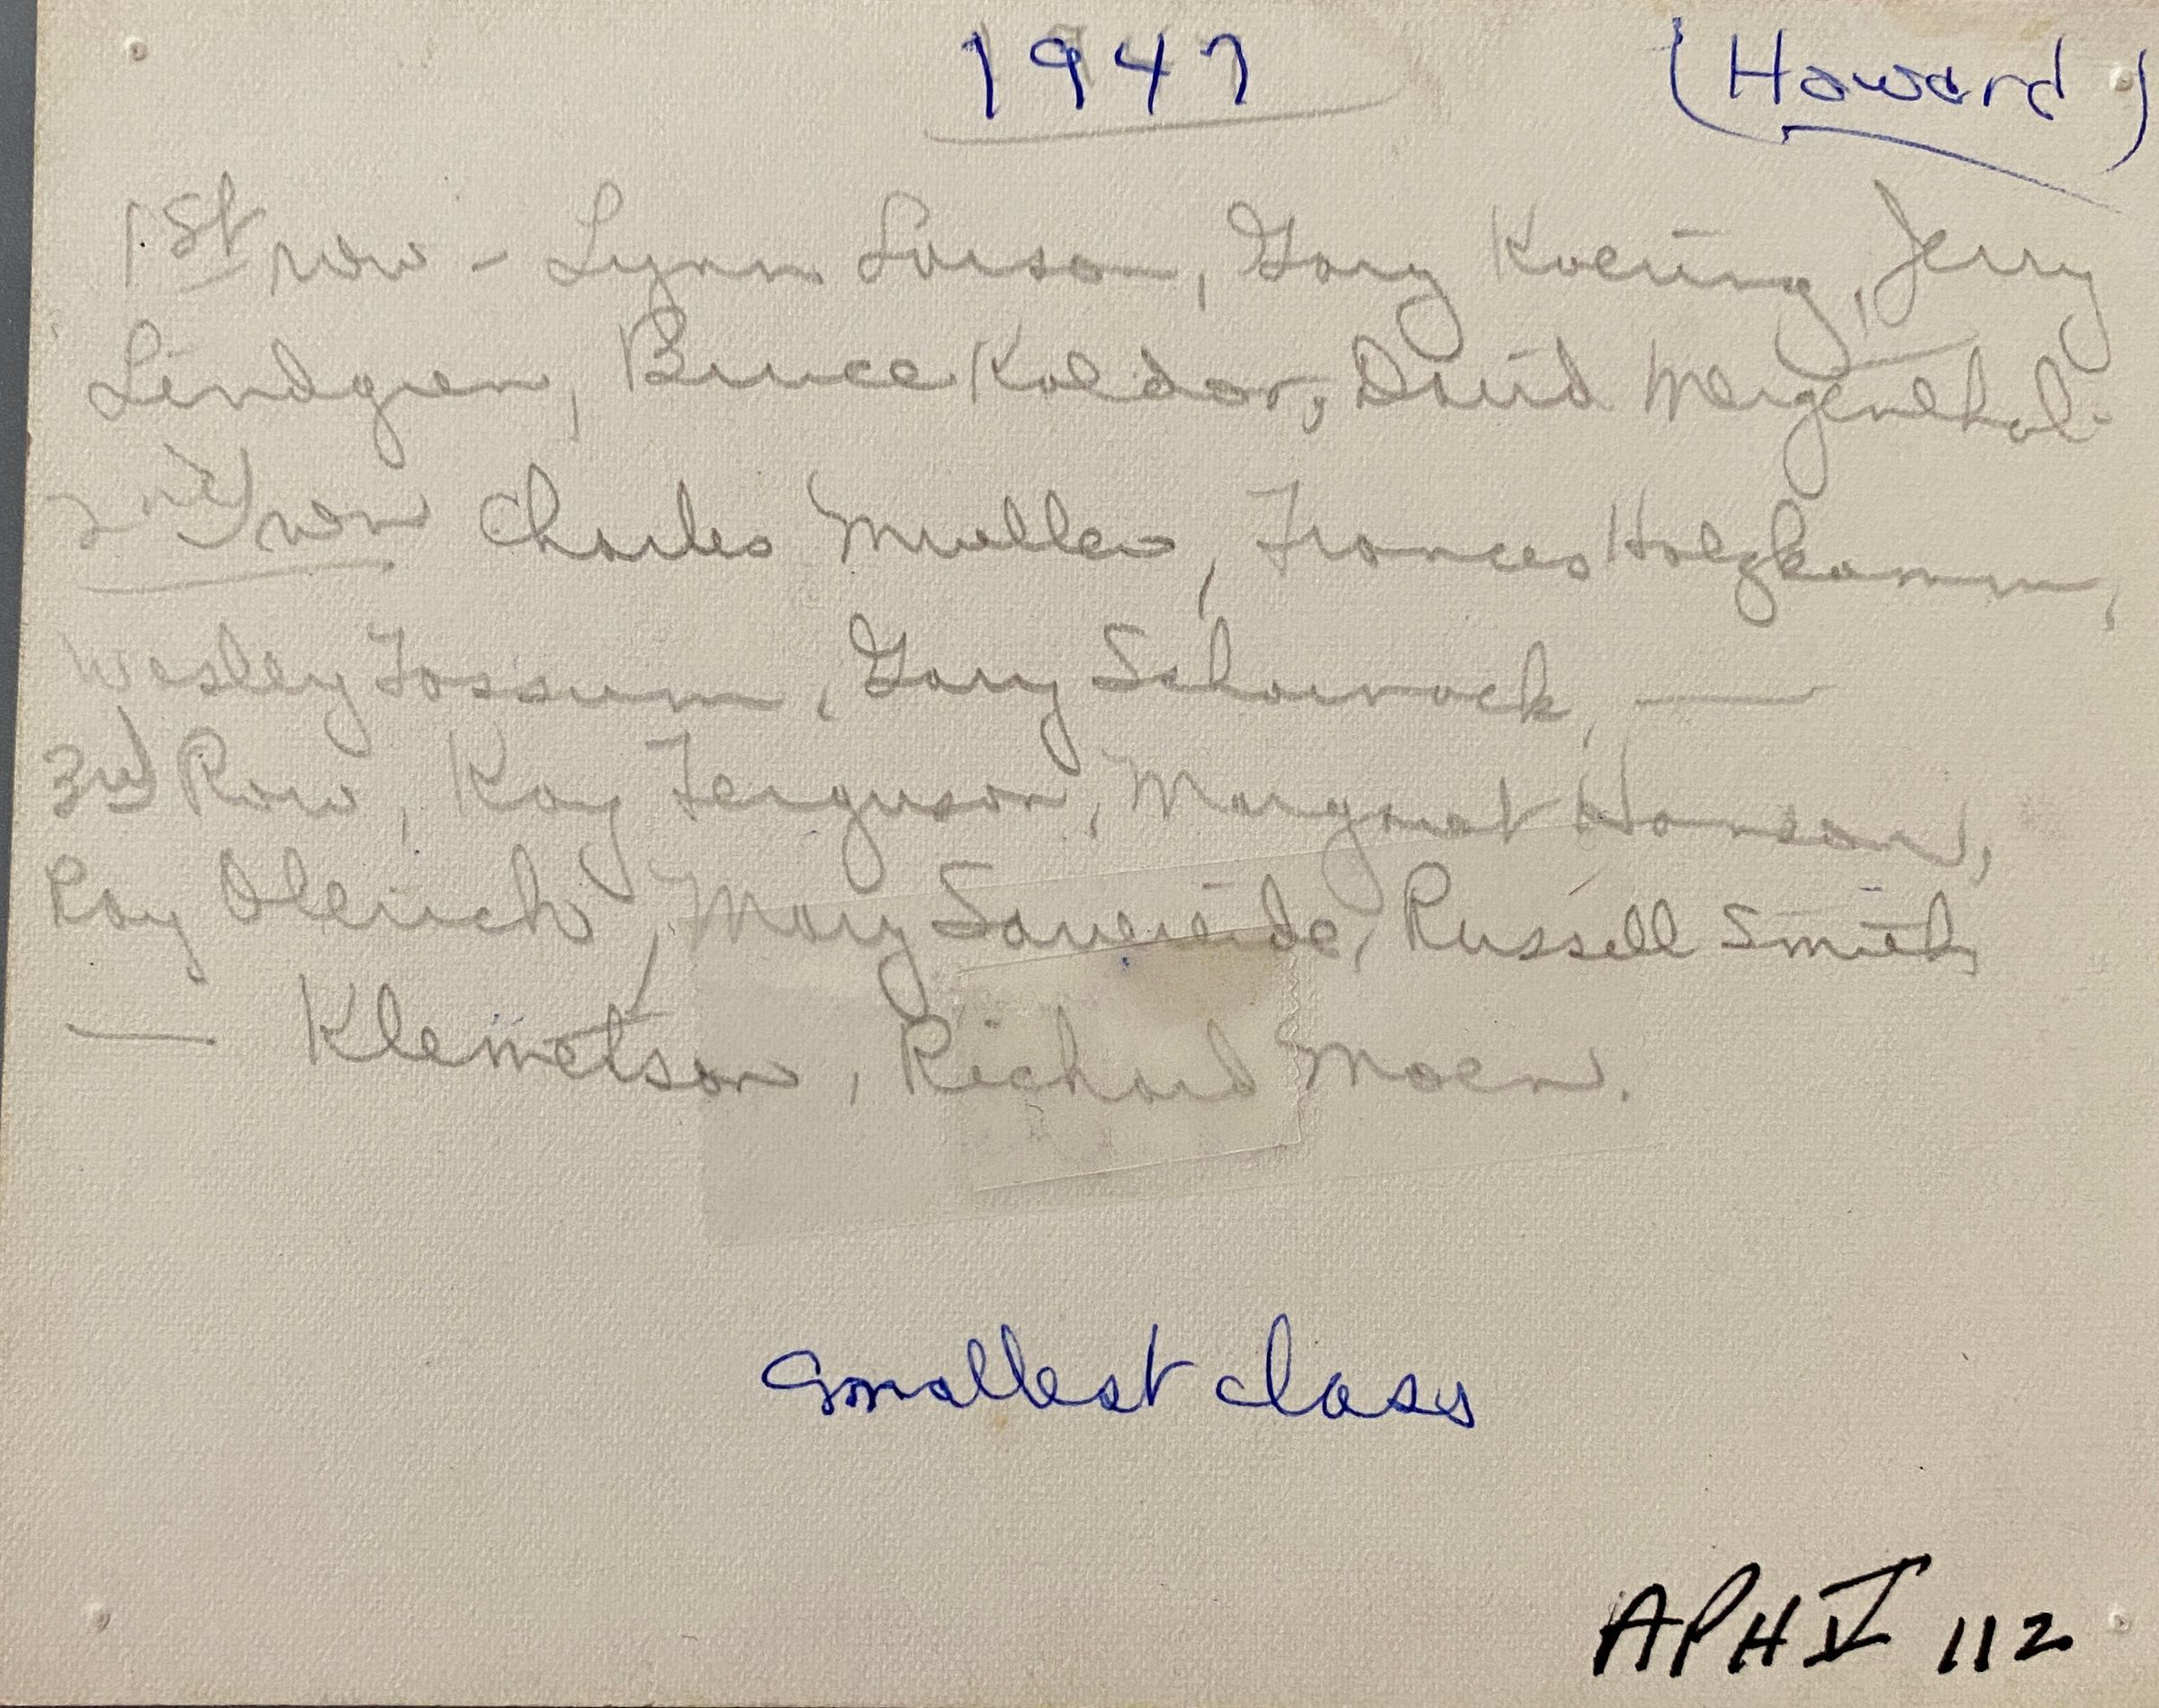 1947 (Howard)
1st row - Lynn Larson, Gary Koenig, Jerry
Lindgren, Bruce Kaldor, David
2nd row Charles Mueller, Frances Holzkamm,
Wesley Fossum, Gary Scharnack, —
3rd Row, Kay Ferguson, Margaret Hanson,
Ray Olerich, Mary Sande, Russell Smith
— Klemetson, Richard Moen.
Smallest class
APH V 112